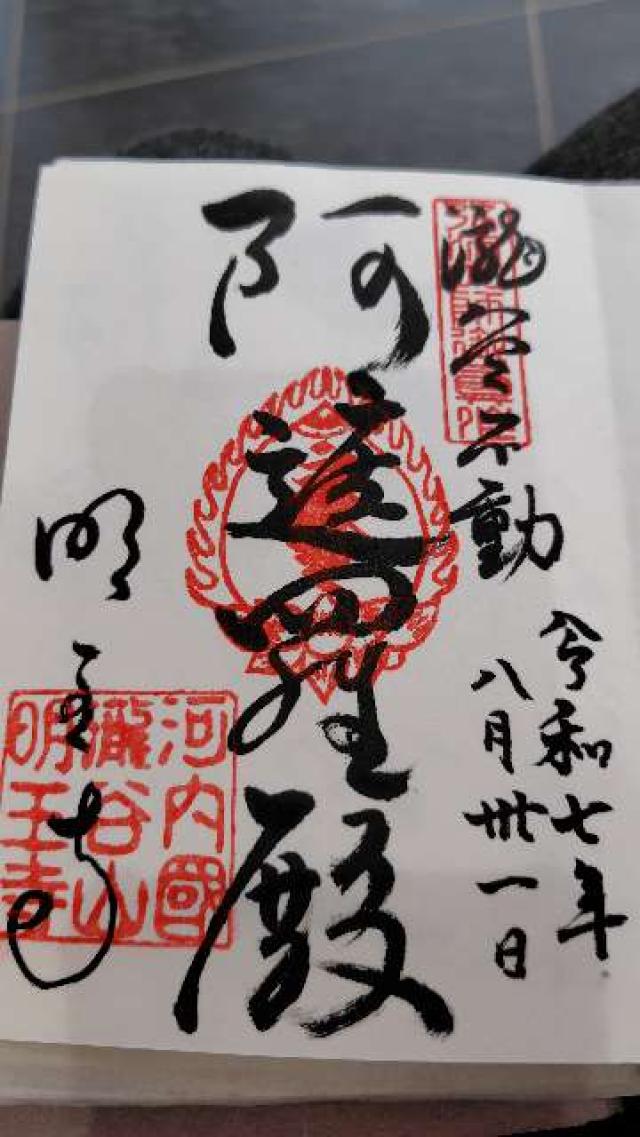 瀧谷不動
令和七年
八月卅一日
阿遮羅殿
明王寺
河内國
瀧谷山
明王寺